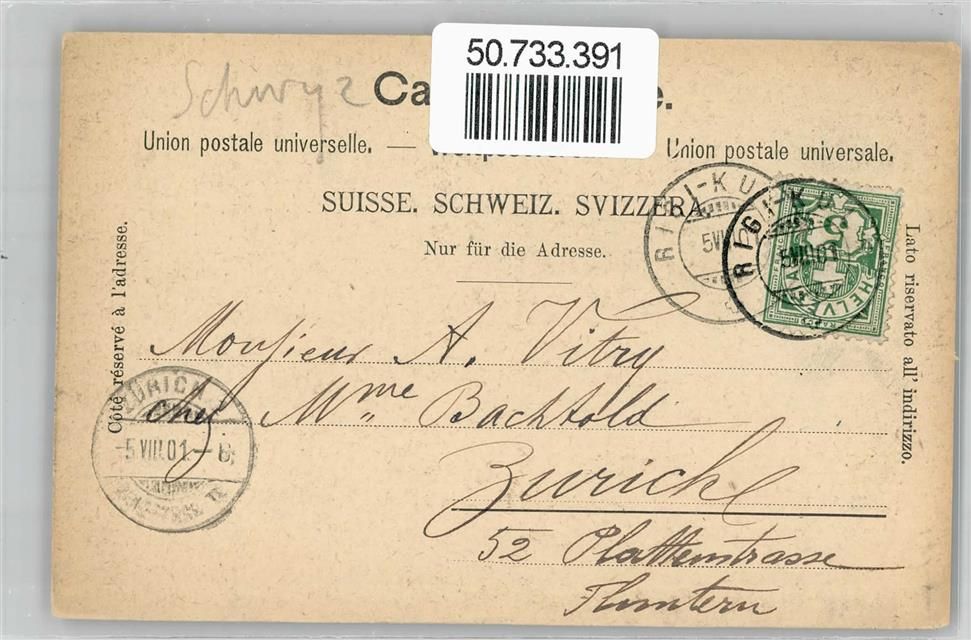 50.733.391
Schwyz
Ca e.
Union postale universelle. — Union postale universale.
SUISSE. SCHWEIZ. SVIZZERA.
Nur für die Adresse.
RIGI-KU
5 VIII 01
RIGI-KU
5 VIII 01
5
HELVE
Côté réservé à l'adresse.
Lato riservato all' indirizzo.
Monsieur A. Vitry
chez Mme Bachtold
Zurich
52 Plattenstrasse
Fluntern
ZÜRICH
-5 VIII.01-8